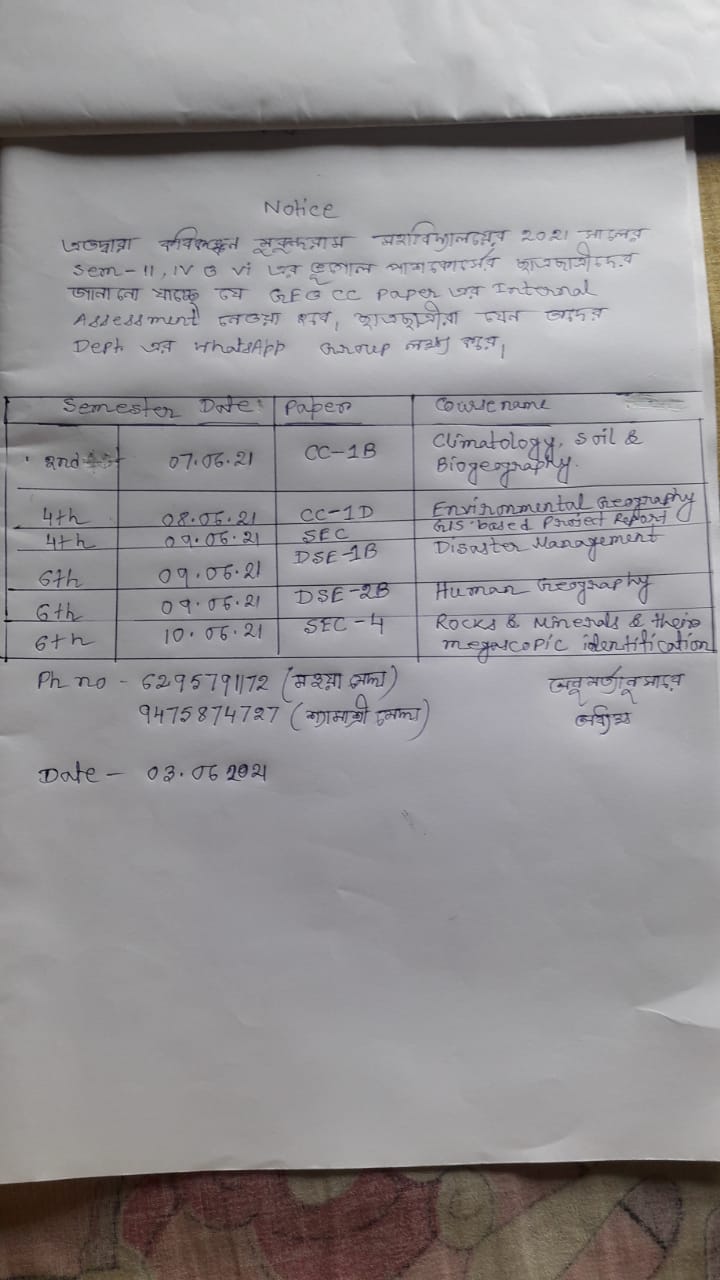 Notice
এতদ্বারা কবিকঙ্কন মুকুন্দরাম মহাবিদ্যালয়ের 2021 সালের
Sem-II, IV ও VI এর ভূগোল পাশকোর্সের ছাত্রছাত্রীদের
জানানো যাচ্ছে যে GEO CC Paper এর Internal
Assessment নেওয়া হবে, ছাত্রছাত্রীরা যেন তাদের
Dept এর WhatsApp Group লক্ষ্য করে,
Semester Date Paper Course name
2nd 07.06.21 CC-1B Climatology, Soil &
Biogeography.
4th 08.06.21 CC-1D Environmental Geography
4th 09.06.21 SEC GIS based Project Report
6th 09.06.21 DSE-1B Disaster Management
6th 09.06.21 DSE-2B Human Geography
6th 10.06.21 SEC-4 Rocks & Minerals & their
megascopic identification
Ph no - 6295791172
9475874727
Date - 03.06.2021